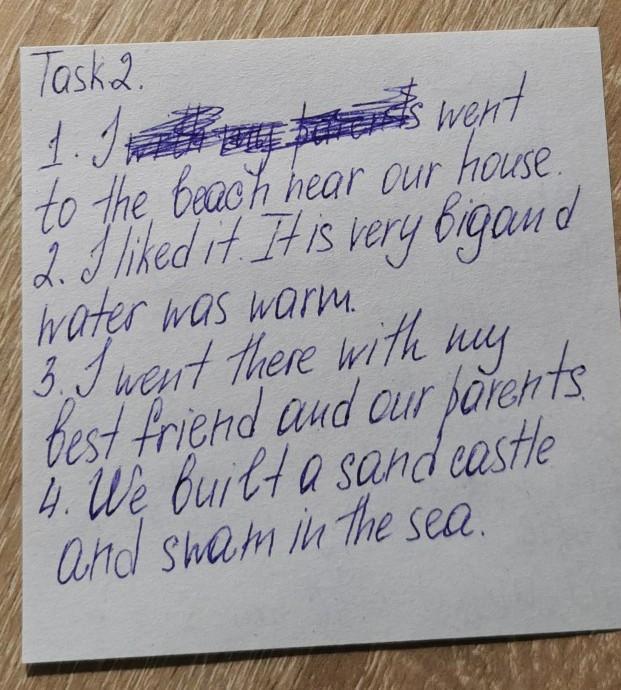 Task 2.
1. I with my parents went
to the beach near our house.
2. I liked it. It is very big and
water was warm.
3. I went there with my
best friend and our parents.
4. We built a sand castle
and swam in the sea.